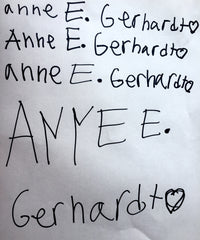 anne E. Gerhardt♡
Anne E. Gerhardt♡
anne E. Gerhardt♡
ANNE E.
Gerhardt♡